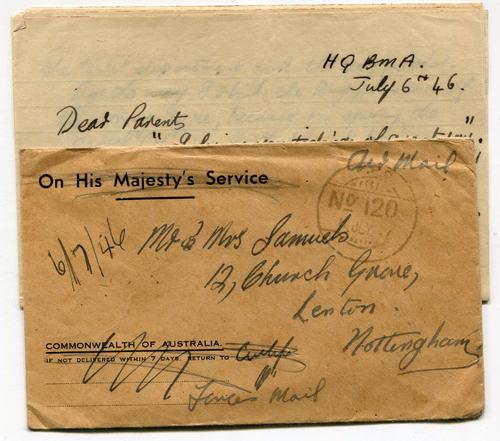 HQ BMA.
July 6th 46.
Dear Parents
Air Mail
On His Majesty's Service
No 120
6/7/46
Mr & Mrs Samuels
12, Church Grove,
Lenton.
Nottingham
COMMONWEALTH OF AUSTRALIA.
IF NOT DELIVERED WITHIN 7 DAYS, RETURN TO
Forces Mail